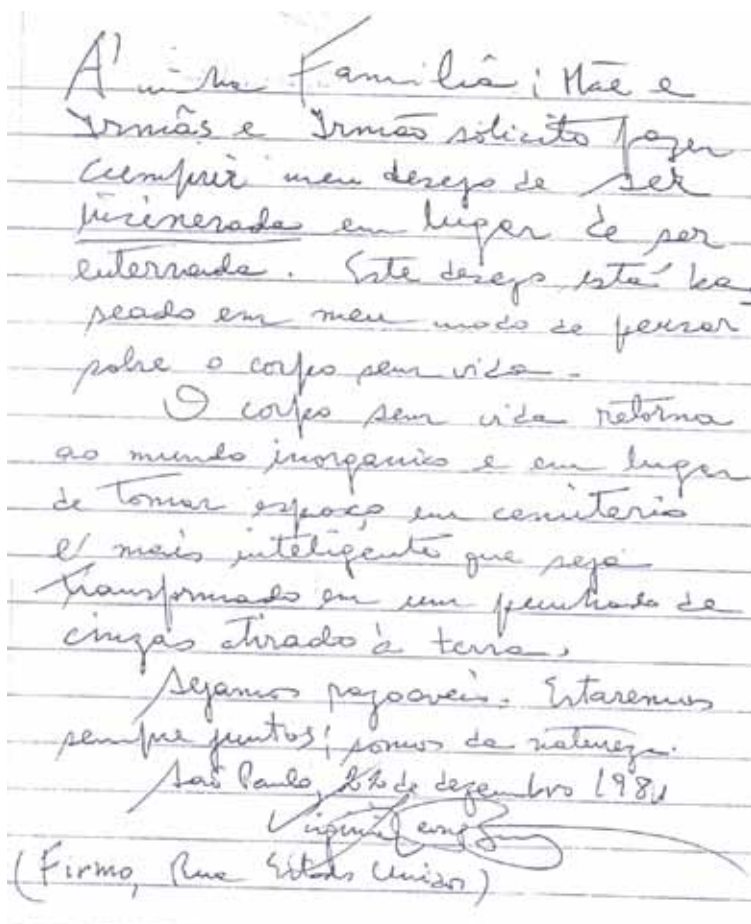 À minha Familia; Mãe e
Irmãs e Irmão solicito fazer
cumprir meu desejo de ser
incinerada em lugar de ser
enterrada. Este desejo está ba
seado em meu modo de pensar
sobre o corpo sem vida.
O corpo sem vida retorna
ao mundo inorganico e em lugar
de tomar espaço em cemiterio
é mais inteligente que seja
transformado em um punhado de
cinzas atirado à terra.
Sejamos razoaveis. Estaremos
sempre juntos; somos da natureza.
São Paulo, de dezembro 1981
Virginia
(Firmo, Rua Estados Unidos)